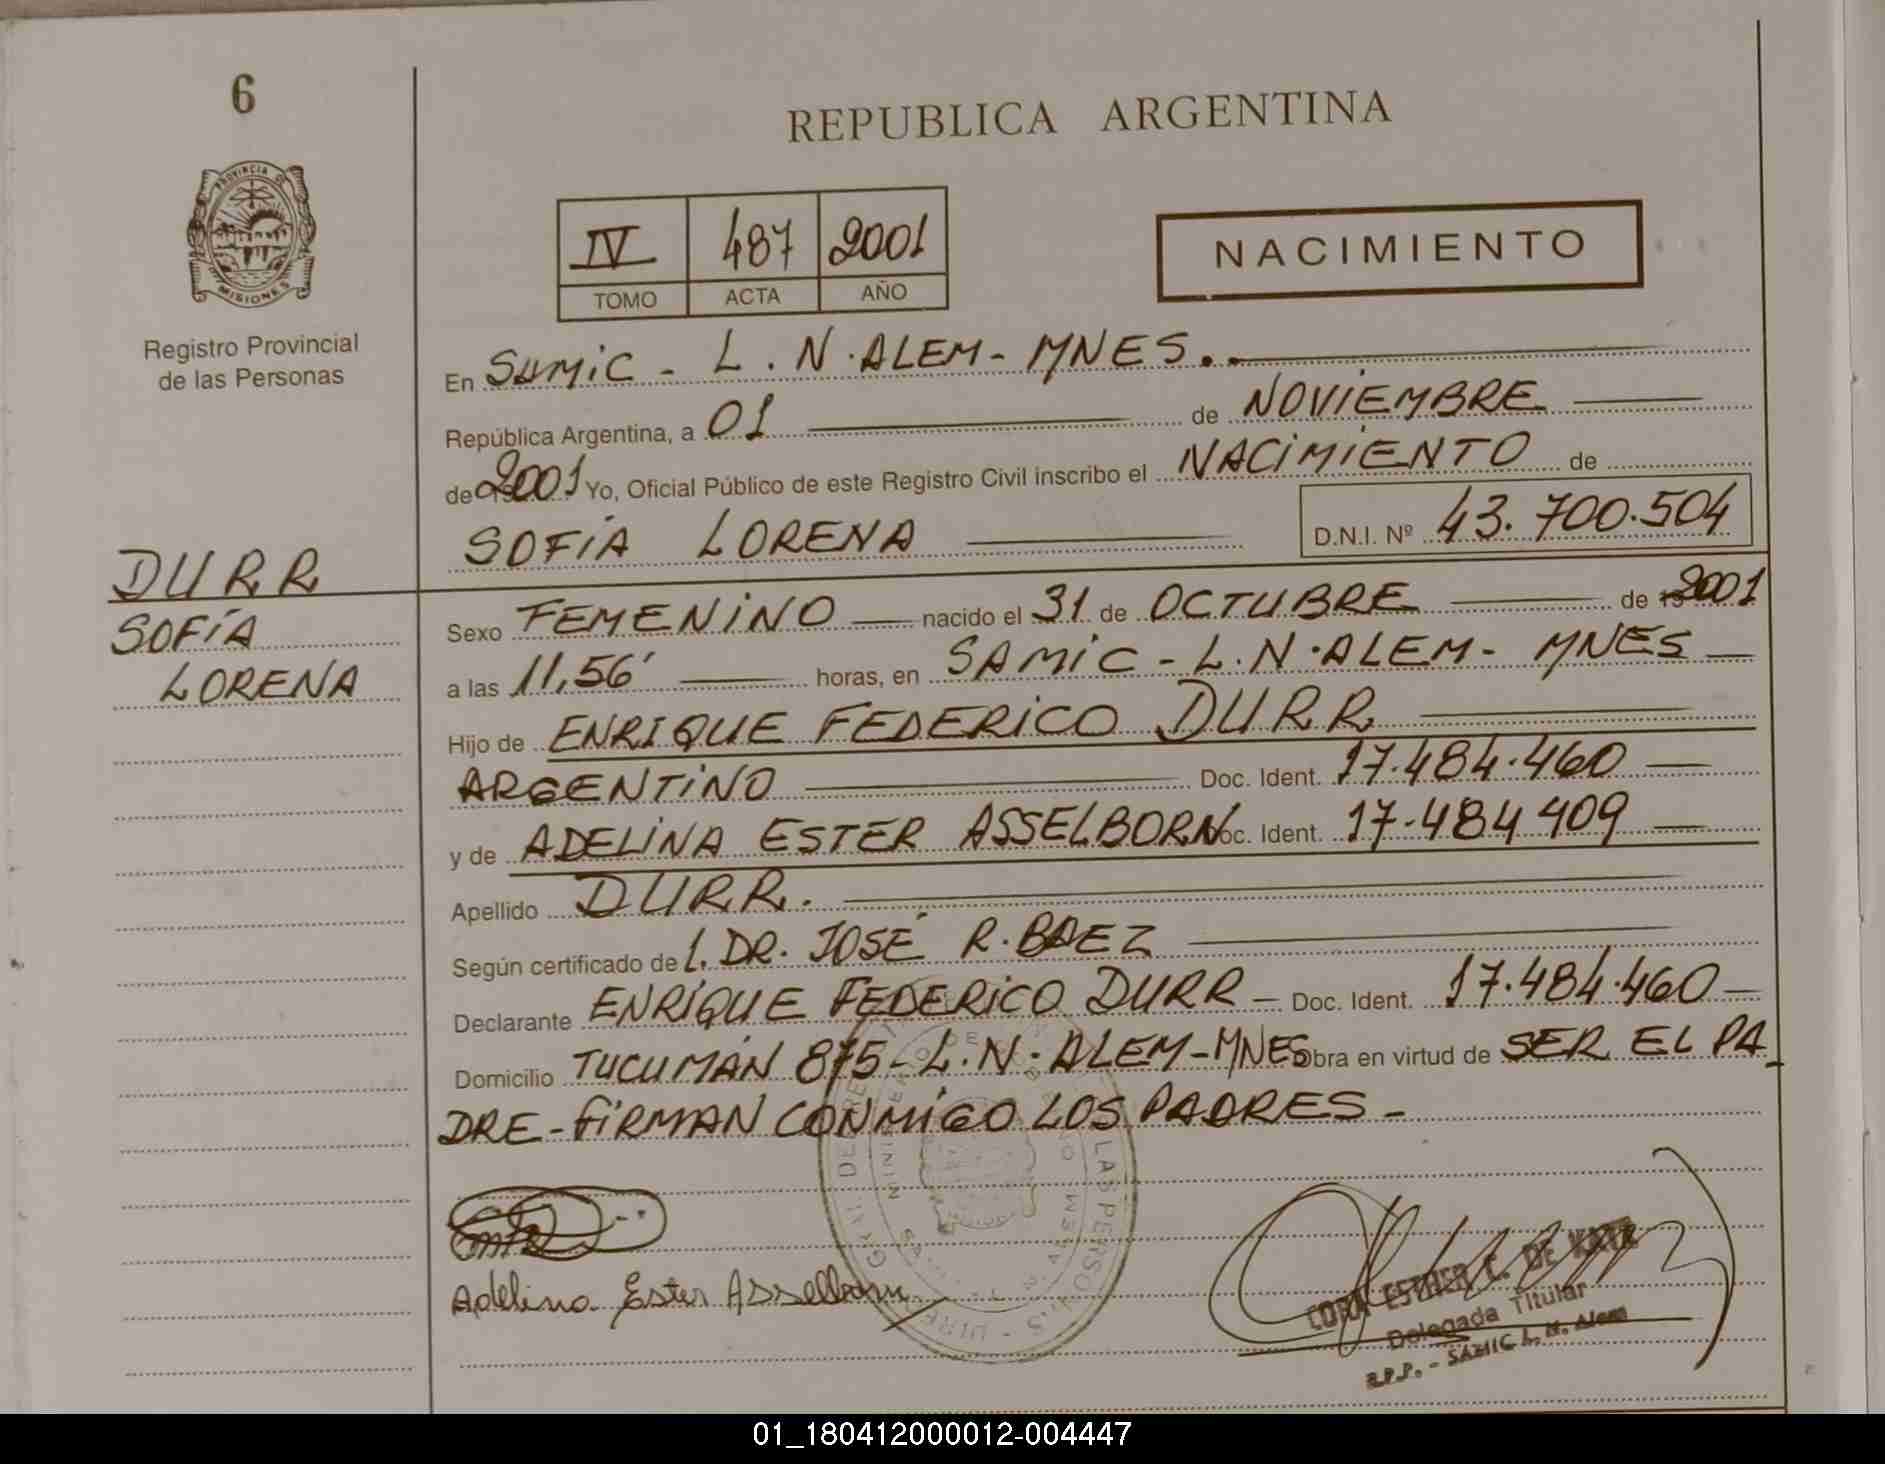 6
REPUBLICA ARGENTINA
PROVINCIA DE
MISIONES
Registro Provincial
de las Personas
IV 487 2001
TOMO ACTA AÑO
NACIMIENTO
En SAMIC - L.N.ALEM - MNES..
República Argentina, a 01 de NOVIEMBRE
de 2001 Yo, Oficial Público de este Registro Civil inscribo el NACIMIENTO de
SOFÍA LORENA D.N.I. Nº 43.700.504
DURR
SOFÍA
LORENA
Sexo FEMENINO nacido el 31 de OCTUBRE de 2001
a las 11,56' horas, en SAMIC - L.N.ALEM - MNES
Hijo de ENRIQUE FEDERICO DURR
ARGENTINO Doc. Ident. 17.484.460
y de ADELINA ESTER ASSELBORN Doc. Ident. 17.484409
Apellido DURR.
Según certificado de l. DR. JOSÉ R. BAEZ
Declarante ENRIQUE FEDERICO DURR - Doc. Ident. 17.484.460
Domicilio TUCUMÁN 875 - L.N.ALEM - MNES Obra en virtud de SER EL PA_
DRE - FIRMAN CONMIGO LOS PADRES -
Adelina Ester Asselborn
ESTHER C. DE
Delegada Titular
R.P.P. - SAMIC L. N. Alem
01_180412000012-004447